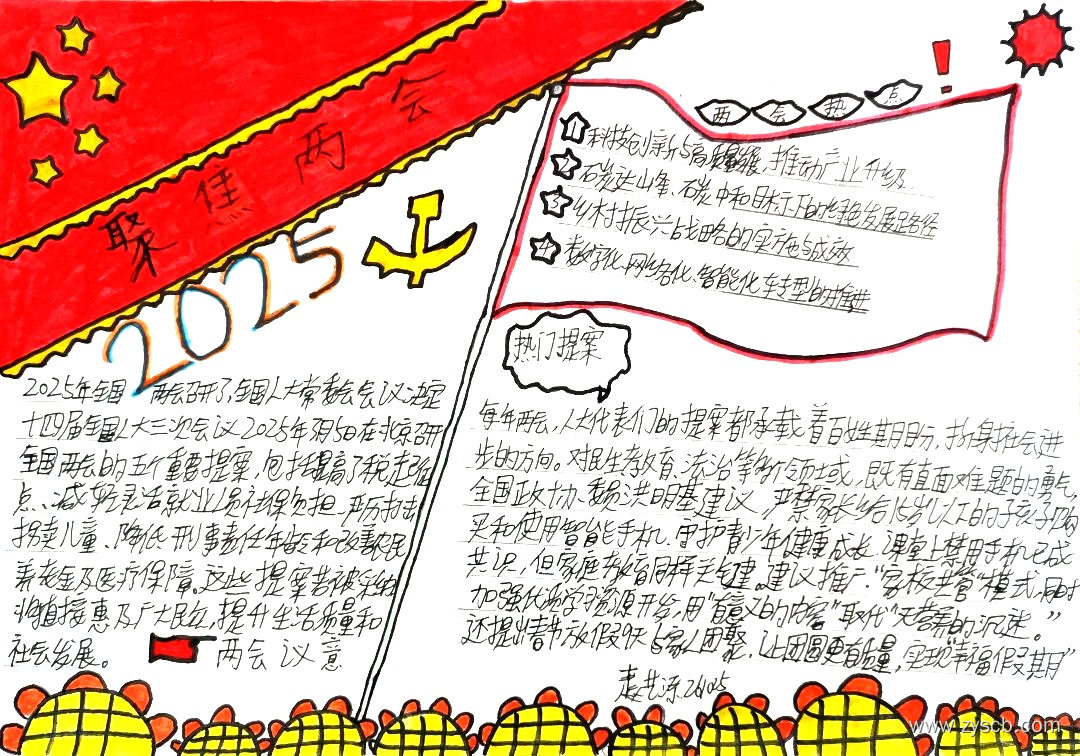 聚焦两会
2025
两会热点
!
1 科技创新与高质量发展,推动产业升级
2 石炭达山峰、石炭中和目标下的绿色发展路径
3 乡村振兴战略的实施与成效
4 数字化、网络化、智能化转型的推进
2025年全国两会召开了,全国人大常委会会议决定
十四届全国人大三次会议2025年3月5日在北京召开
全国两会的五个重要提案,包括提高个税起征
点、减轻灵活就业人员社保负担、严厉打击
拐卖儿童、降低刑事责任年龄和改善农民
养老金及医疗保障。这些提案若被采纳
将直接惠及广大民众,提升生活质量和
社会发展。
两会议意
热门提案
每年两会,人大代表们的提案都承载着百姓期盼,折射社会进
步的方向。对民生教育、法治等领域,既有直面难题的勇气,
全国政协委员洪明基建议,严禁家长给15岁以下的孩子购
买和使用智能手机,守护青少年健康成长,课堂上禁用手机已成
共识,但家庭教育同样关键。建议推广“家校共管”模式,同时
加强优质学习资源开发,用“有意义的内容”取代“无营养的沉迷。”
还提出春节放假9天与家人团聚,让团圆更有质量,实现“幸福假期”
2025
www.zyscb.com